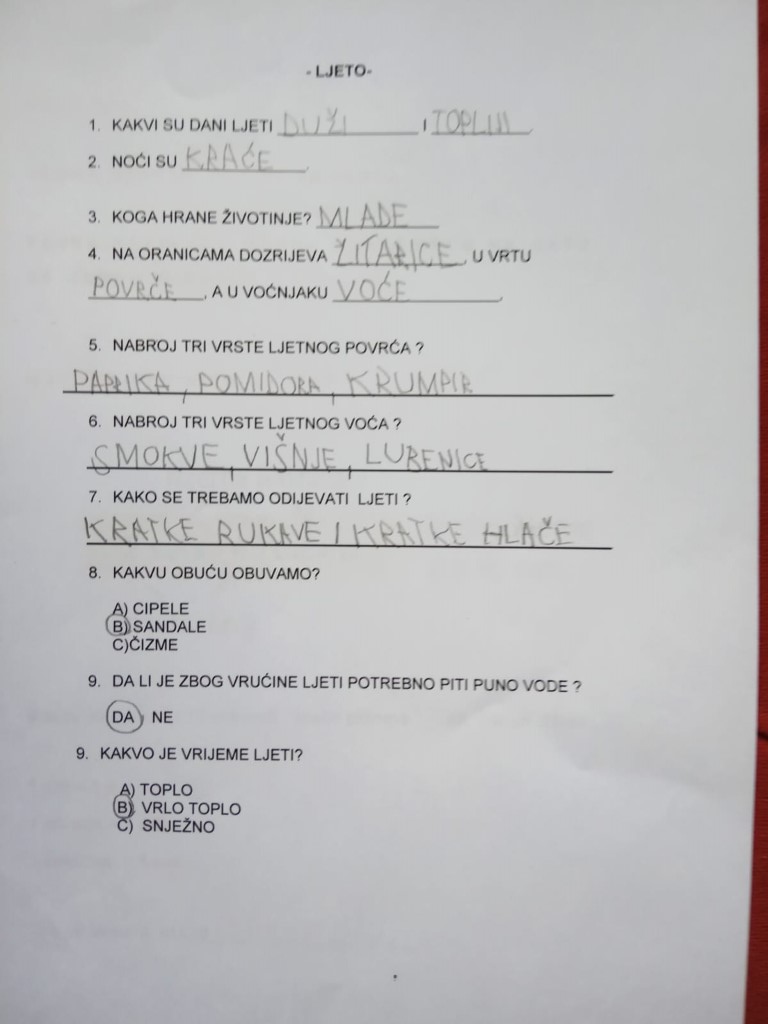 - LJETO-
1. KAKVI SU DANI LJETI DUŽI I TOPLIJI
2. NOĆI SU KRAĆE
3. KOGA HRANE ŽIVOTINJE? MLADE
4. NA ORANICAMA DOZRIJEVA ŽITARICE, U VRTU
POVRČE, A U VOĆNJAKU VOĆE
5. NABROJ TRI VRSTE LJETNOG POVRĆA ?
PAPRIKA, POMIDORA, KRUMPIR
6. NABROJ TRI VRSTE LJETNOG VOĆA ?
SMOKVE, VIŠNJE, LUBENICE
7. KAKO SE TREBAMO ODIJEVATI LJETI ?
KRATKE RUKAVE I KRATKE HLAČE
8. KAKVU OBUĆU OBUVAMO?
A) CIPELE
B) SANDALE
C)ČIZME
9. DA LI JE ZBOG VRUĆINE LJETI POTREBNO PITI PUNO VODE ?
DA, NE
9. KAKVO JE VRIJEME LJETI?
A) TOPLO
B) VRLO TOPLO
C) SNJEŽNO